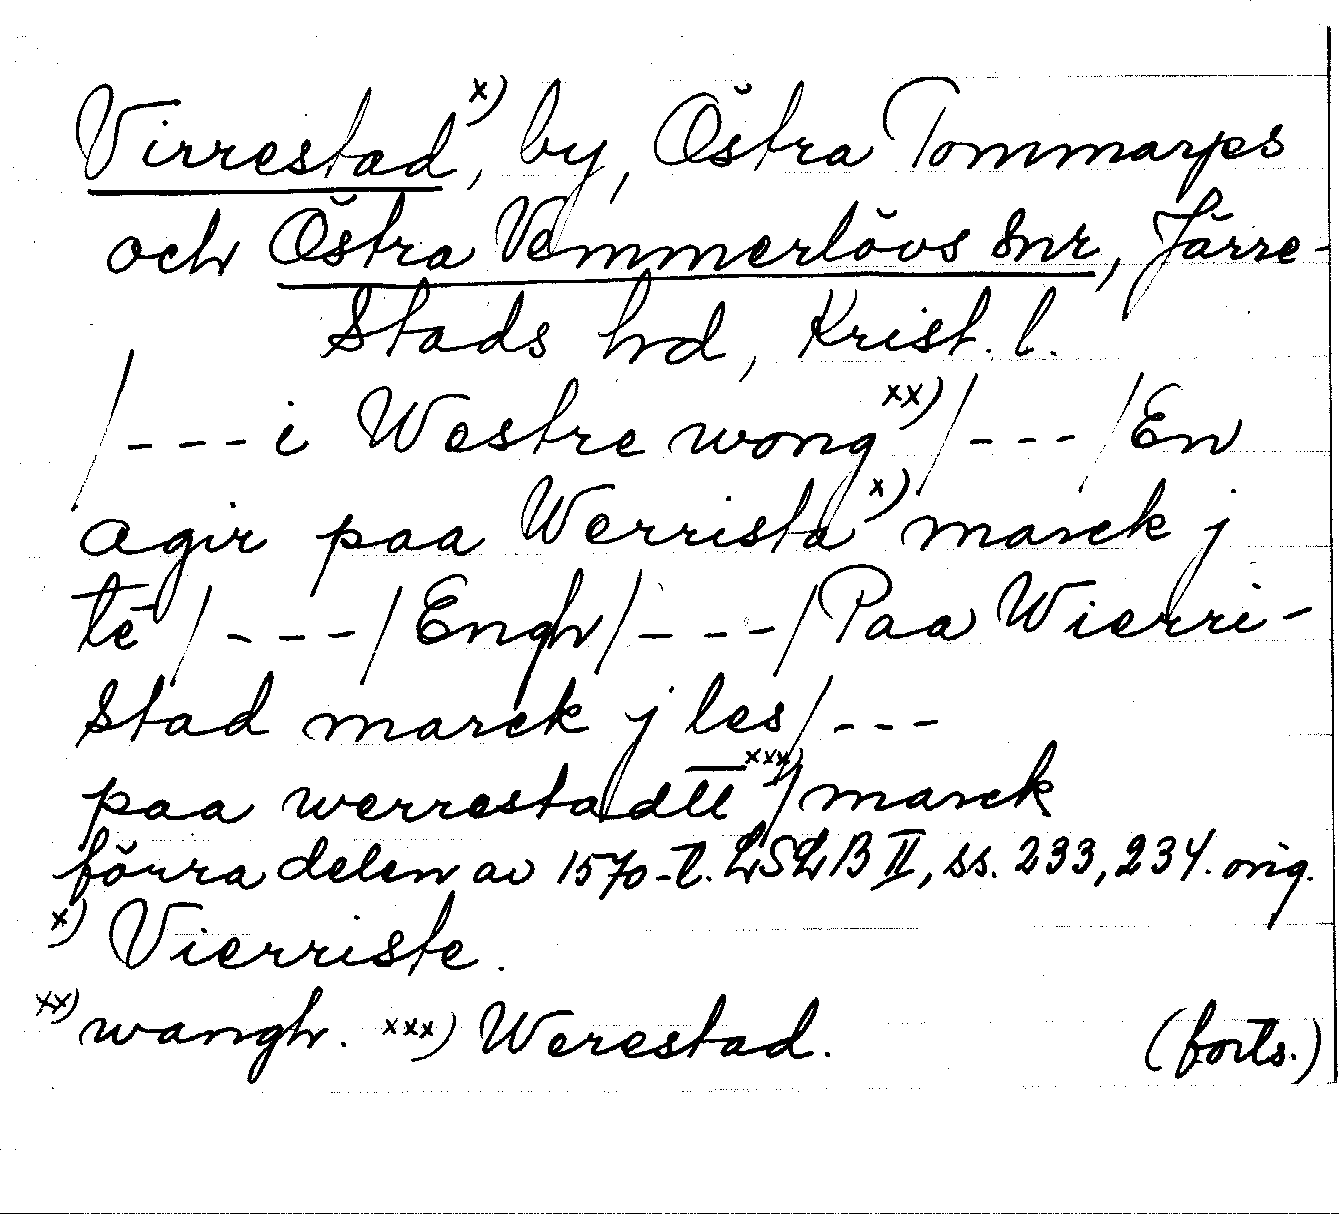 Virrestad x), by, Östra Tommarps
och Östra Vemmerlövs snr, Järre-
stads hd, Krist. l.
/---i Westre wong xx)/---/En
agir paa Werrista x) marck j
tē/---/Engh/---/Paa Wierri-
stad marck j les/---
paa werrestadtt xxx)/marck
förra delen av 1570-t. LSLB II, ss. 233, 234. orig.
x) Vierriste.
xx) wangh. xxx) Werestad. (forts.)